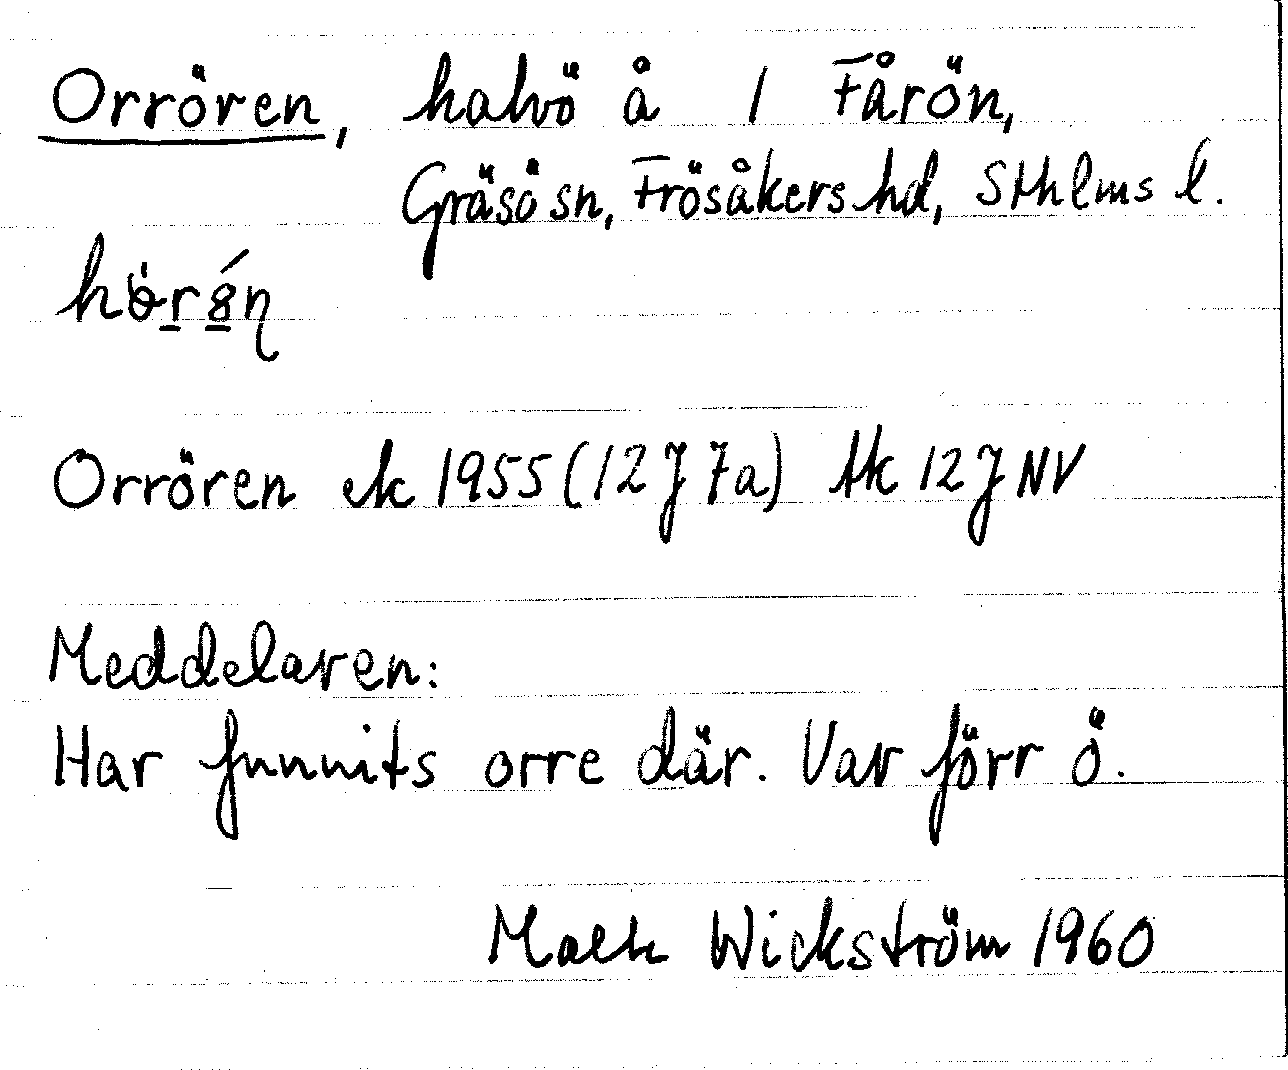 Orrören, halvö å 1 Fårön,
Gräsö sn, Frösåkers hd, Sthlms l.
Orrören ek 1955 (12 J 7a) tk 12 J NV
Meddelaren:
Har funnits orre där. Var förr ö.
Wickström 1960